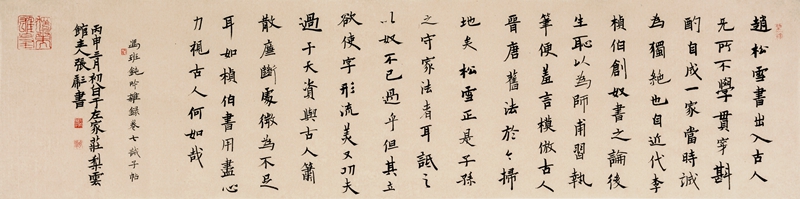 趙松雪書出入古人
无所不學貫穿斟
酌自成一家當時誠
為獨絶也自近代李
楨伯創奴書之論後
生恥以為師甫習執
筆便羞言模倣古人
晉唐舊法於今掃
地矣松雪正是子孫
之守家法者耳詆之
以奴不已過乎但其立
欲使字形流美又功夫
過于天資與古人蕭
散廉斷處微為不足
耳如楨伯書用盡心
力視古人何如哉
馮班鈍吟雜録卷七誡子帖
丙申三月初
館主人張
書